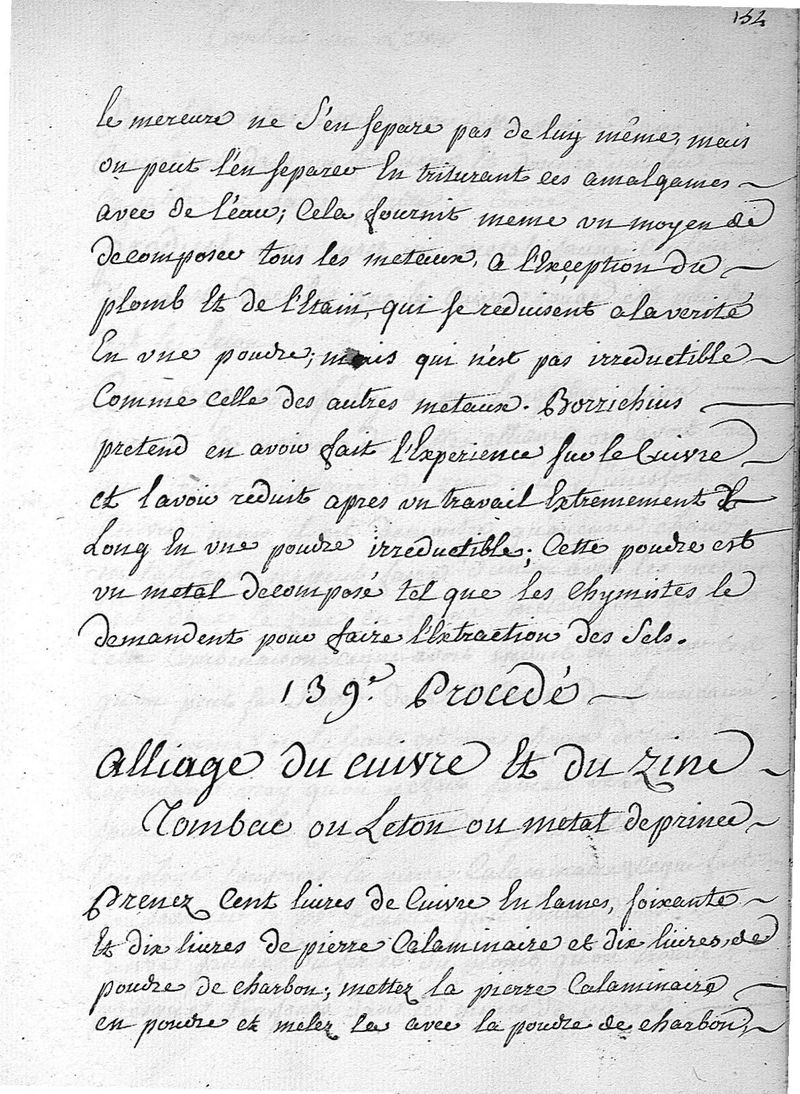 152
le mercure ne S'en separe pas de luy même, mais
on peut l'en separer En triturant ces amalgames
avec de l'éau; Cela fournit meme un moyen de
decomposer tous les metaux, a l'Exception du
plomb Et de l'Etain, qui se reduisent a la verité
En une poudre; mais qui n'est pas irreductible
Comme celle des autres metaux. Borrichius
pretend en avoir fait l'Experience sur le Cuivre
et l'avoir reduit apres un travail Extremement
Long En une poudre irreductible; Cette poudre est
un metal decomposé tel que les Chymistes le
demandent pour faire l'Extraction des Sels.
139.e Procédé
alliage du cuivre Et du zinc
Tombac ou Leton ou metal de prince
Prenez Cent livres de Cuivre En lames, soixante
Et dix livres de pierre Calaminaire et dix livres de
poudre de charbon; mettez la pierre Calaminaire
en poudre et mêlez la avec la poudre de charbon;